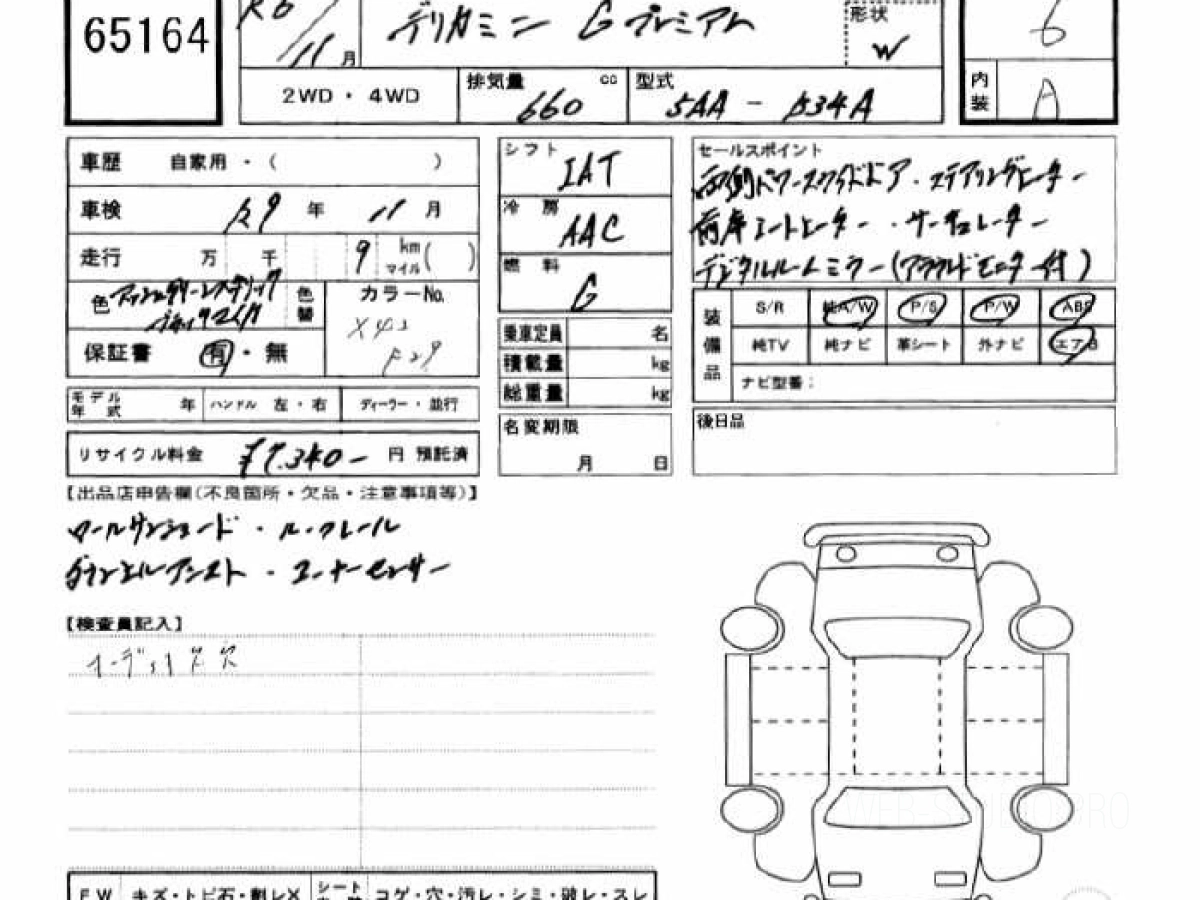 65164
R6/11月
デリカミニ Gプレミアム
形状 W
6
2WD・4WD
排気量 660 cc
型式 5AA-B34A
内装 A
車歴 自家用・( )
車検 R9年 11月
走行 万 千 9 km マイル( )
色 アッシュグリーンメタリック
ブラックマイカ
色替
カラーNo.
X42
F29
保証書 有・無
モデル年式 年 ハンドル 左・右 ディーラー・並行
リサイクル料金 ¥7,340- 円 預託済
シフト IAT
冷房 AAC
燃料 G
乗車定員 名
積載量 kg
総重量 kg
名変期限
月 日
セールスポイント
両側パワースライドドア・ステアリングヒーター
前席シートヒーター・サーキュレーター
デジタルルームミラー(アラウンドモニター付)
装備品
S/R 純A/W P/S P/W ABS
純TV 純ナビ 革シート 外ナビ エアB
ナビ型番:
後日品
【出品店申告欄(不良箇所・欠品・注意事項等)】
ロールサンシェード・ルーフレール
ダウンヒルアシスト・コーナーセンサー
【検査員記入】
オーディオ穴
FW キズ・トビ石・削レX シート コゲ・穴・汚レ・シミ・破レ・スレ